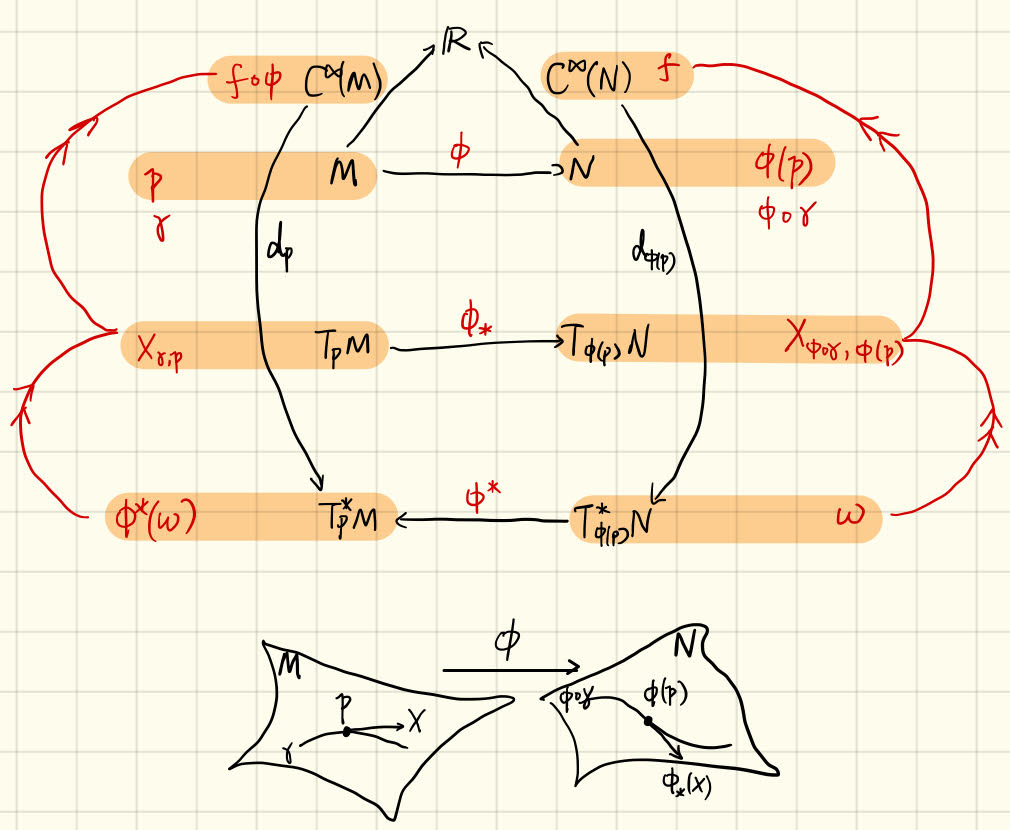 ℝ
f∘ϕ C^∞(M) C^∞(N) f
ϕ
p M N ϕ(p)
γ ϕ∘γ
d_p d_ϕ(p)
ϕ_*
X_γ,p T_pM T_ϕ(p)N X_ϕ∘γ,ϕ(p)
ϕ^*
ϕ^*(ω) T_p^*M T^*_ϕ(p)N ω
ϕ
M N
p X ϕ∘γ ϕ(p)
γ
ϕ_*(X)